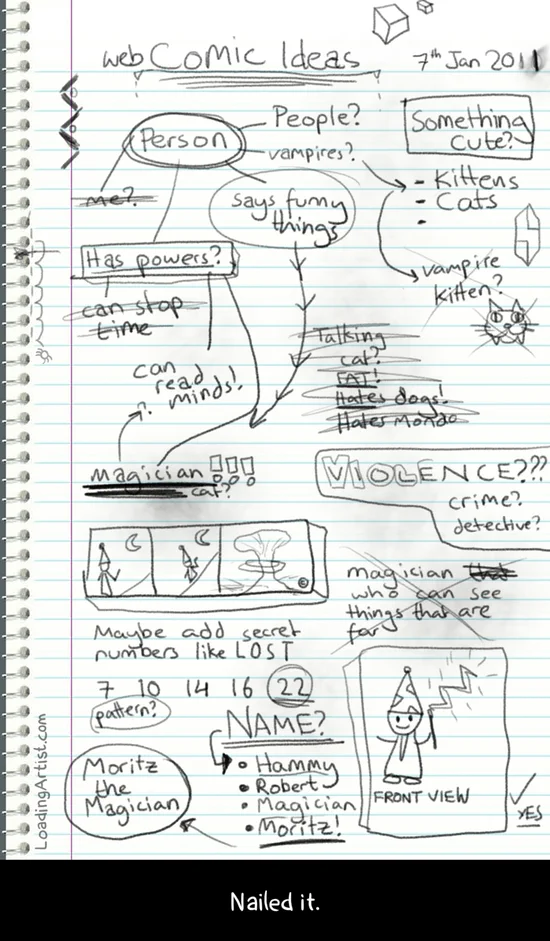 web Comic Ideas
7th Jan 2011
Person
People?
vampires?
Something
cute?
me?
says funny
things
- Kittens
- Cats
-
Has powers?
vampire
kitten?
can stop
time
can
read
minds!
Talking
cat?
FAT!
Hates dogs!
Hates Mondo
magician!!!
cat?
VIOLENCE???
crime?
detective?
magician that
who can see
things that are
far
Maybe add secret
numbers like LOST
7 10 14 16 22
pattern?
NAME?
• Hammy
• Robert
• Magician
• Moritz!
Moritz
the
Magician
FRONT VIEW
YES
LoadingArtist.com
Nailed it.